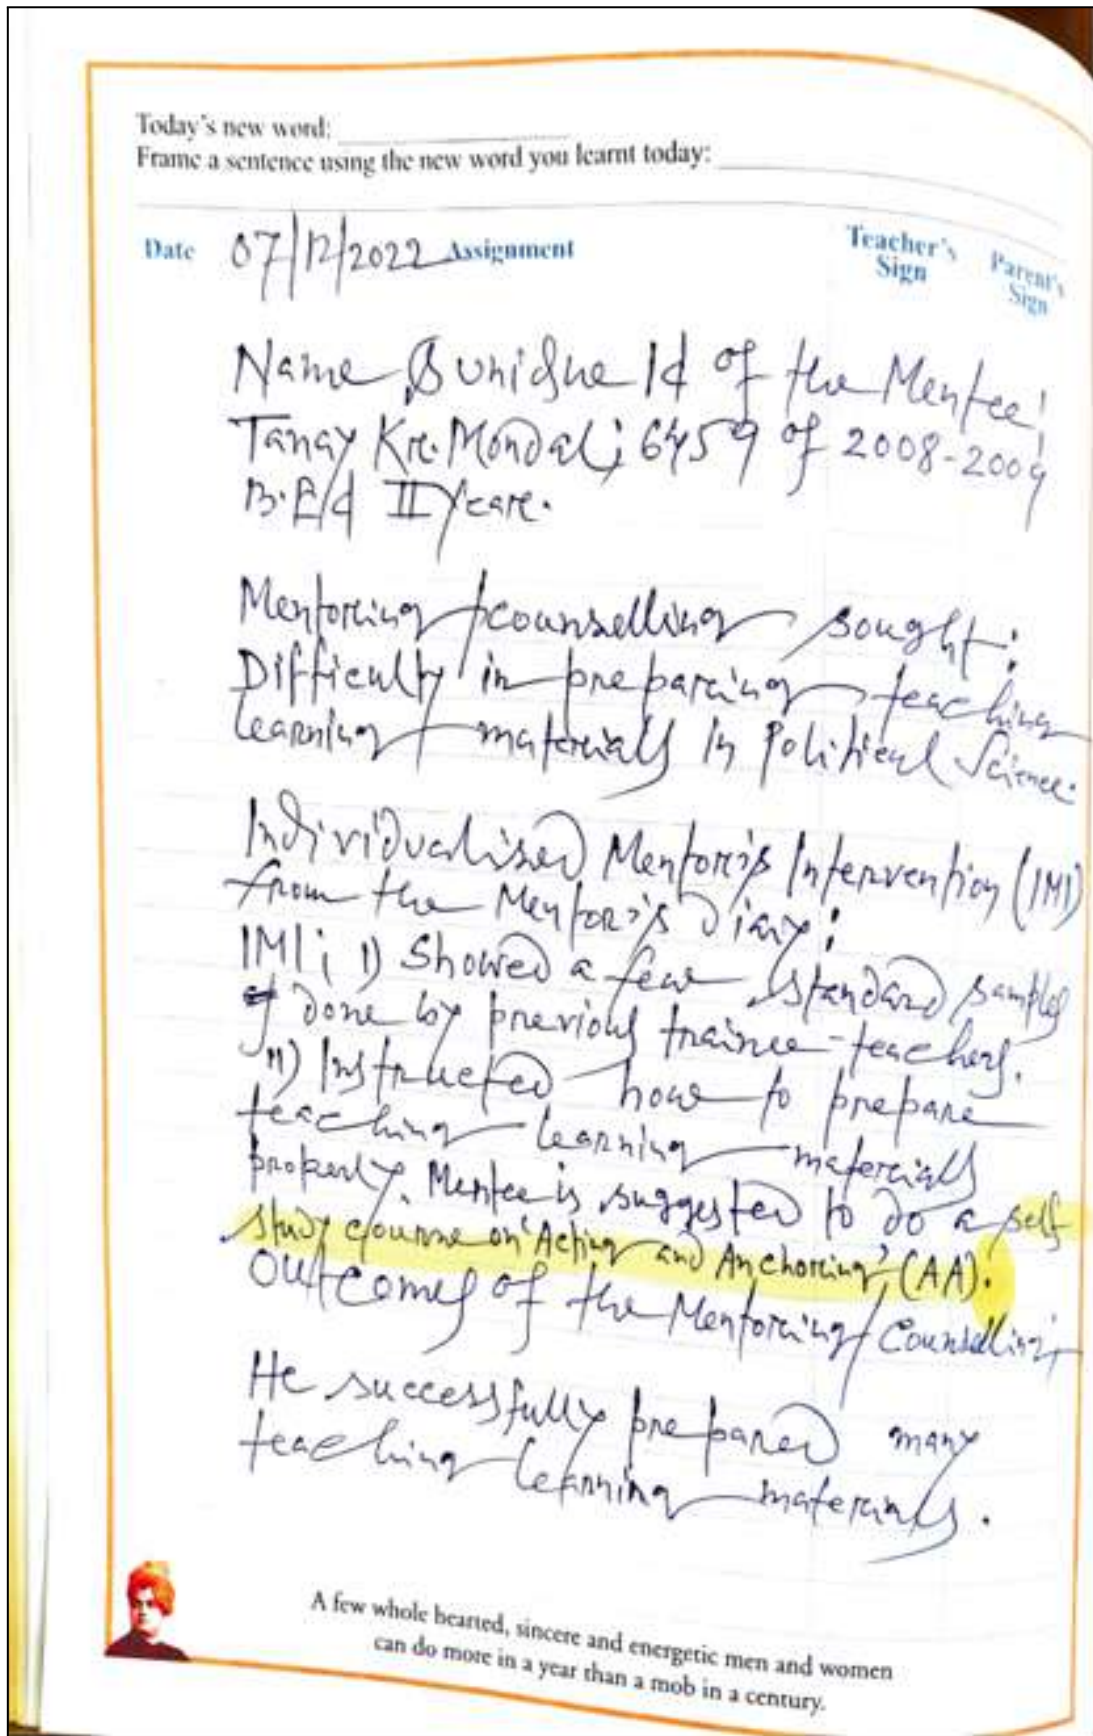 Today's new word:
Frame a sentence using the new word you learnt today:
Date 07/12/2022 Assignment Teacher's Sign Parent's Sign
Name & unique Id of the Mentee:
Tanay Kr. Mondal; 6459 of 2008-2009
B.Ed II Year.
Mentoring/counselling sought:
Difficulty in preparing teaching
learning materials in Political Science.
Individualised Mentor's Intervention (IMI)
from the Mentor's Diary:
IMI; i) Showed a few standard samples
done by previous trainee-teachers.
ii) Instructed how to prepare
teaching learning materials
properly. Mentee is suggested to do a self
study course on 'Acting and Anchoring' (AA).
Outcomes of the Mentoring/Counselling;
He successfully prepared many
teaching learning materials.
A few whole hearted, sincere and energetic men and women
can do more in a year than a mob in a century.